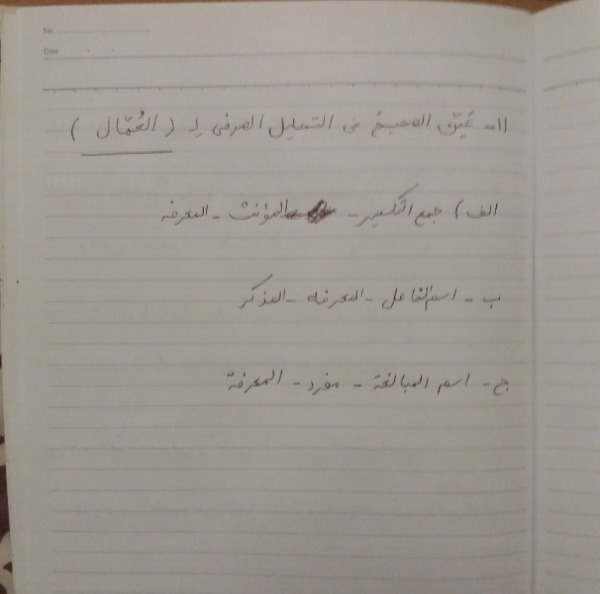 No
Date
۱۱- عَیِّن الصحیحَ فی التحلیل الصرفی لِـ ( العُمّال )
الف) جمع التکسیر - المؤنث - المعرفه
ب - اسم الفاعل - المعرفه - المذکر
ج - اسم المبالغة - مفرد - المعرفة